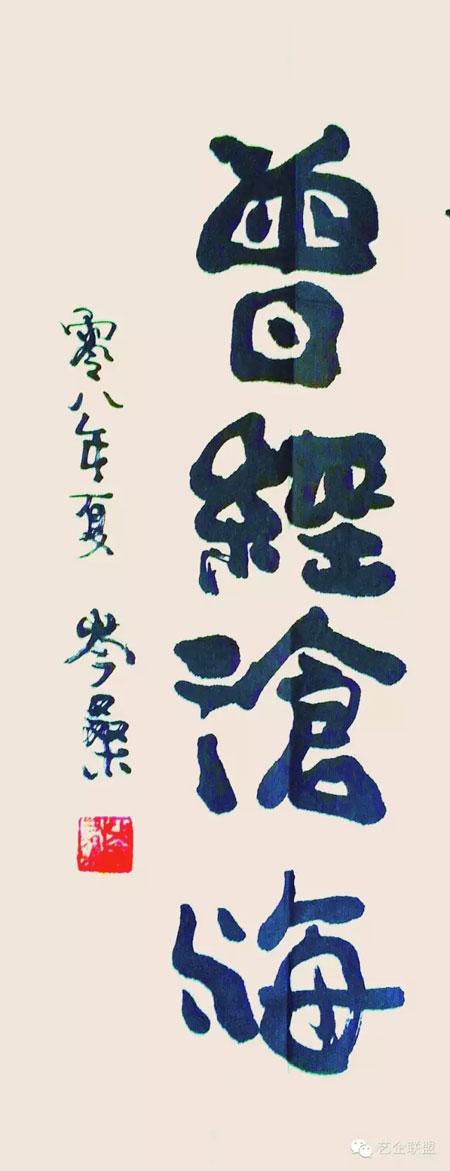 曾經滄海
零八年夏 岑桑
艺企联盟